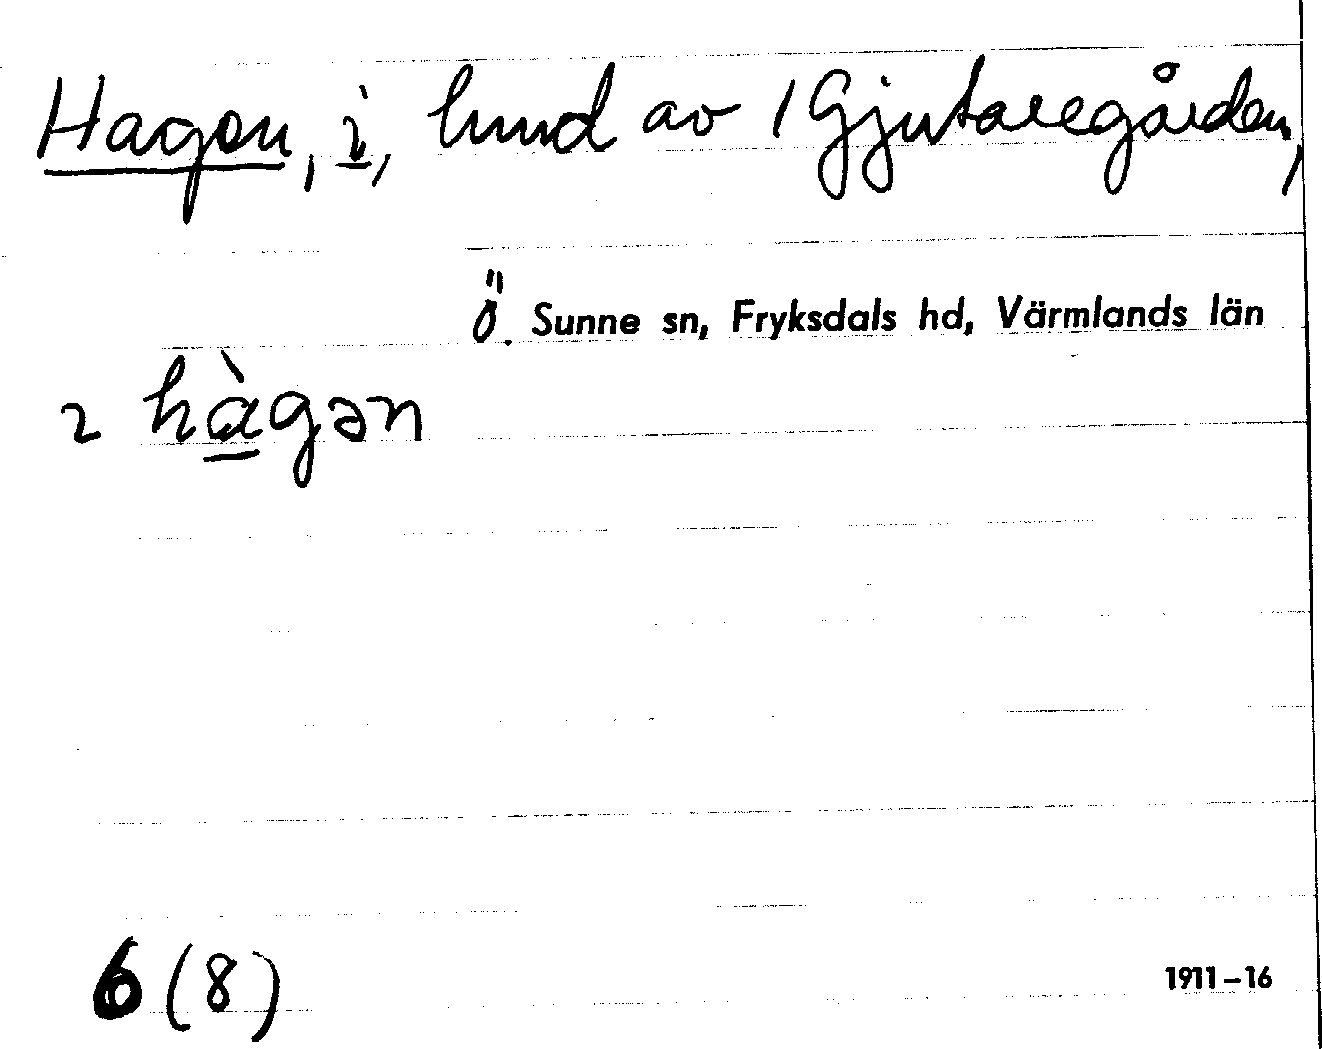 Hagen, i, lund av 1 Gjutaregården,
Ö. Sunne sn, Fryksdals hd, Värmlands län
2 hàgən
6 (8)
1911-16